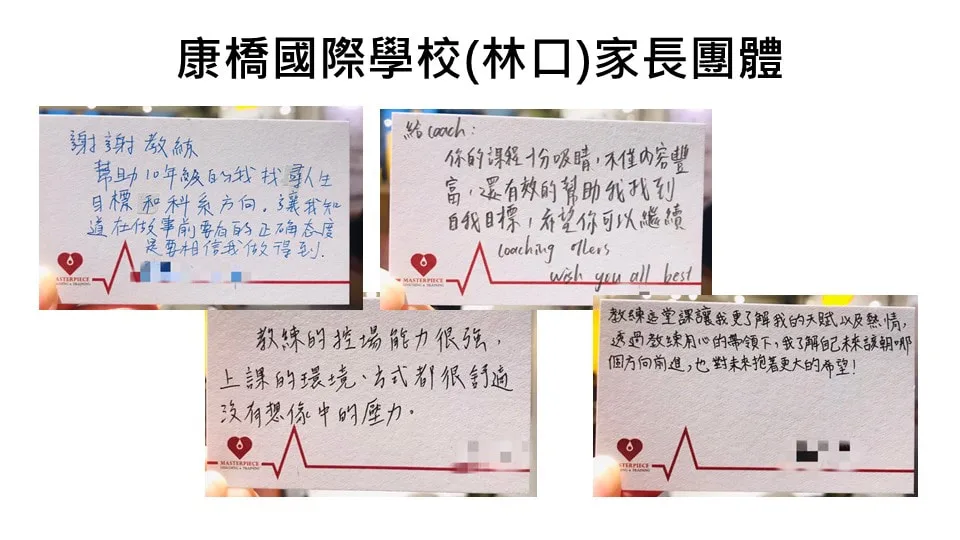 康橋國際學校(林口)家長團體
謝謝教練
幫助10年級的我找尋人生
目標和科系方向。讓我知
道在做事前要有的正确态度
是要相信我做得到.
MASTERPIECE
COACHING & TRAINING
給coach:
你的課程十份吸睛,不僅內容豐
富,還有效的幫助我找到
自我目標,希望你可以繼續
coaching others
wish you all best
MASTERPIECE
COACHING & TRAINING
教練的控場能力很強,
上課的環境、方式都很舒適
沒有想像中的壓力。
MASTERPIECE
COACHING & TRAINING
教練這堂課讓我更了解我的天賦以及熱情,
透過教練用心的帶領下,我了解自己未來該朝哪
個方向前進,也對未來抱著更大的希望!
MASTERPIECE
COACHING & TRAINING